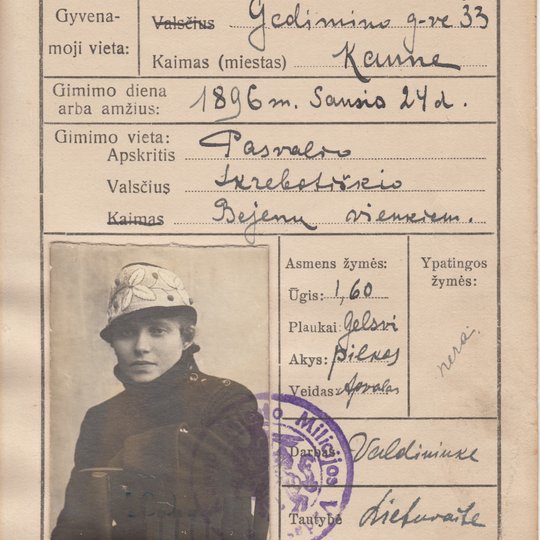 Gyvena-
moji vieta:
Valsčius Gedimino g-vė 33
Kaimas (miestas) Kaune
Gimimo diena
arba amžius: 1896 m. Sausio 24 d.
Gimimo vieta:
Apskritis Pasvalio
Valsčius Skrebotiškio
Kaimas Bejėnų vienkiem.
Asmens žymės:
Ūgis: 1,60
Plaukai: Gelsvi
Akys: pilkos
Veidas: Apvalas
Ypatingos
žymės:
nėra.
Darbas Valdininkė
Tautybė Lietuvaitė
Milicijos